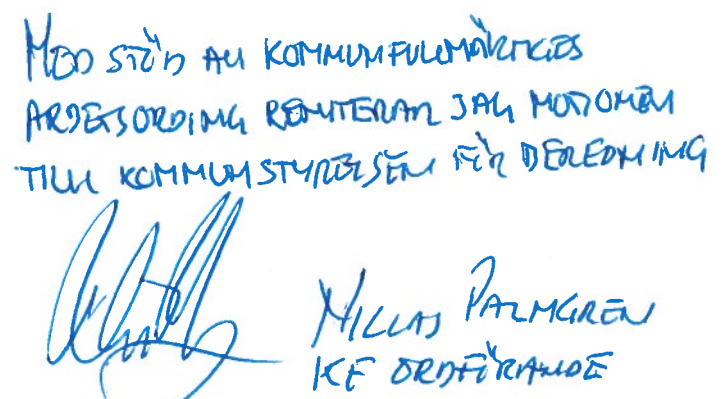 MED STÖD AV KOMMUNFULLMÄKTIGES
ARBETSORDNING REMITERAR JAG MOTIONEN
TILL KOMMUNSTYRELSEN FÖR BEREDNING
NICLAS PALMGREN
KF ORDFÖRANDE